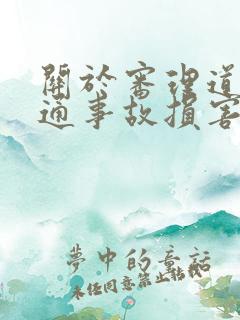 關於審理道
通事故損害
夢中的童話
未经同意禁止转载